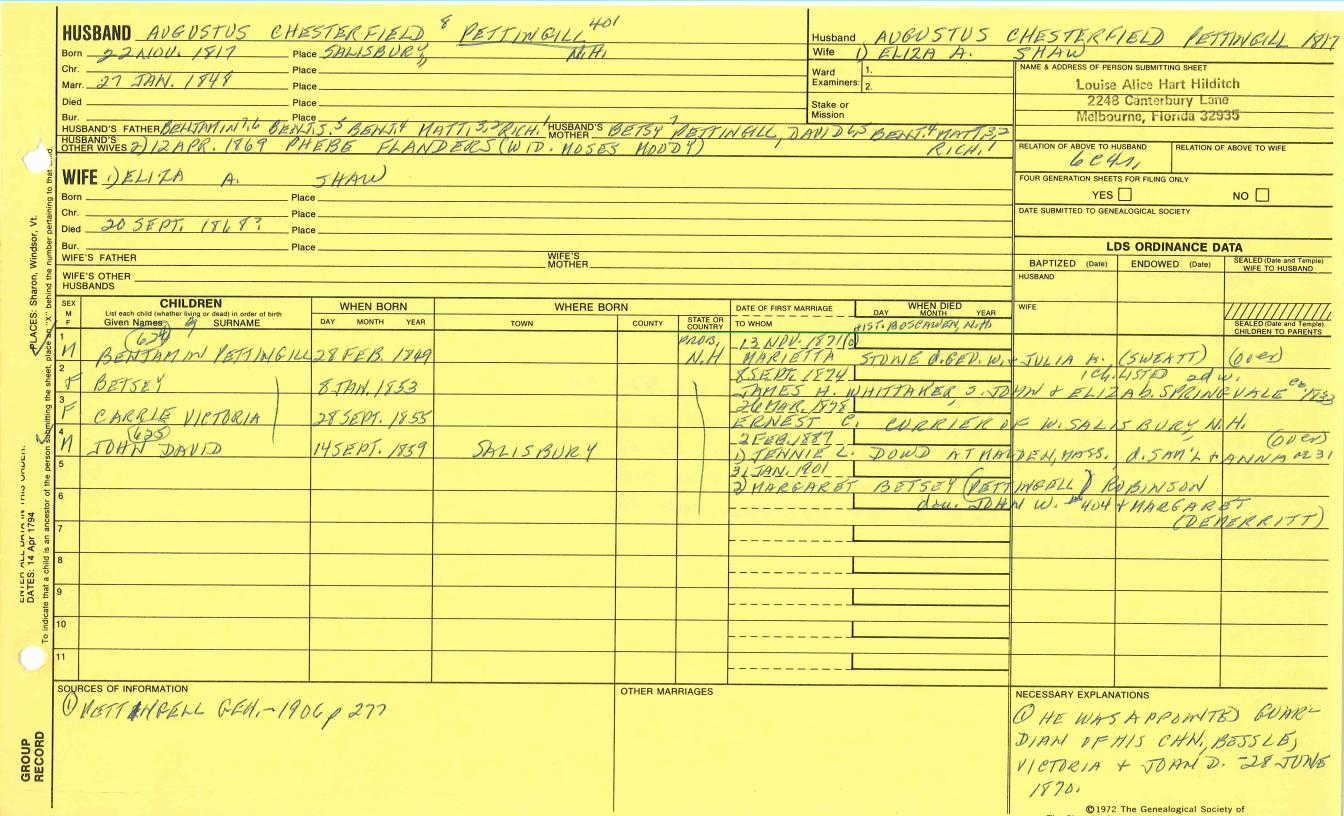 HUSBAND AUGUSTUS CHESTERFIELD 8 PETTINGILL 401
Born 22 NOV. 1817 Place SALISBURY, N.H.
Chr. Place
Marr. 27 JAN. 1848 Place
Died Place
Bur. Place
HUSBAND'S FATHER BENJAMIN 7,6 BENJ. 5 BENJ. 4 MATT. 3,2 RICH. 1 HUSBAND'S MOTHER BETSY 7 PETTINGILL, DAVID 6,5 BENJ. 4 MATT. 3,2 RICH. 1
HUSBAND'S OTHER WIVES 2) 12 APR. 1869 PHEBE FLANDERS (WID. MOSES MOODY)
WIFE 1) ELIZA A. SHAW
Born Place
Chr. Place
Died 20 SEPT. 1868? Place
Bur. Place
WIFE'S FATHER WIFE'S MOTHER
WIFE'S OTHER HUSBANDS
Husband AUGUSTUS CHESTERFIELD PETTINGILL 1817
Wife 1) ELIZA A. SHAW
Ward Examiners: 1.
2.
Stake or Mission
NAME & ADDRESS OF PERSON SUBMITTING SHEET
Louise Alice Hart Hilditch
2248 Canterbury Lane
Melbourne, Florida 32935
RELATION OF ABOVE TO HUSBAND RELATION OF ABOVE TO WIFE
FOUR GENERATION SHEETS FOR FILING ONLY
YES NO
DATE SUBMITTED TO GENEALOGICAL SOCIETY
LDS ORDINANCE DATA
BAPTIZED (Date) ENDOWED (Date) SEALED (Date and Temple) WIFE TO HUSBAND
HUSBAND
WIFE
SEALED (Date and Temple) CHILDREN TO PARENTS
SEX M F CHILDREN List each child (whether living or dead) in order of birth Given Names SURNAME
WHEN BORN DAY MONTH YEAR
WHERE BORN TOWN COUNTY STATE OR COUNTRY
DATE OF FIRST MARRIAGE TO WHOM
WHEN DIED DAY MONTH YEAR
1 M (624) BENJAMIN PETTINGILL 28 FEB. 1849 PROB. N.H 13 NOV. 1871 BOSCAWEN, N.H.
MARIETTA STONE d. GEO. W. + JULIA A. (SWEATT) (over)
2 F BETSEY 8 JAN. 1853 8 SEPT. 1874 2d w.
JAMES H. WHITTAKER, S. JOHN & ELIZAB. SPRINGVALE
3 F CARRIE VICTORIA 28 SEPT. 1855 26 MAR. 1878
ERNEST C. CURRIER OF W. SALISBURY, N.H.
4 M (625) JOHN DAVID 14 SEPT. 1859 SALISBURY 2 FEB. 1887 (over)
1) JENNIE L. DOWD AT MALDEN, MASS. d. SAM'L + ANNA
5 3 JAN. 1901
2) MARGARET BETSEY (PETTINGELL) ROBINSON
6 dau. JOHN W. 404 + MARGARET
(DEMERRITT)
7
8
9
10
11
SOURCES OF INFORMATION
① PETTINGELL GEN. - 1906 p 277
OTHER MARRIAGES
NECESSARY EXPLANATIONS
① HE WAS APPOINTED GUAR-
DIAN OF HIS CHN, BESSIE,
VICTORIA + JOHN D. - 28 JUNE
1870.
©1972 The Genealogical Society of
PLACES: Sharon, Windsor, Vt.
ENTER ALL DATA IN THIS ORDER:
DATES: 14 Apr 1794
To indicate that a child is an ancestor of the person submitting the sheet, place an "X" behind the number pertaining to that
GROUP RECORD